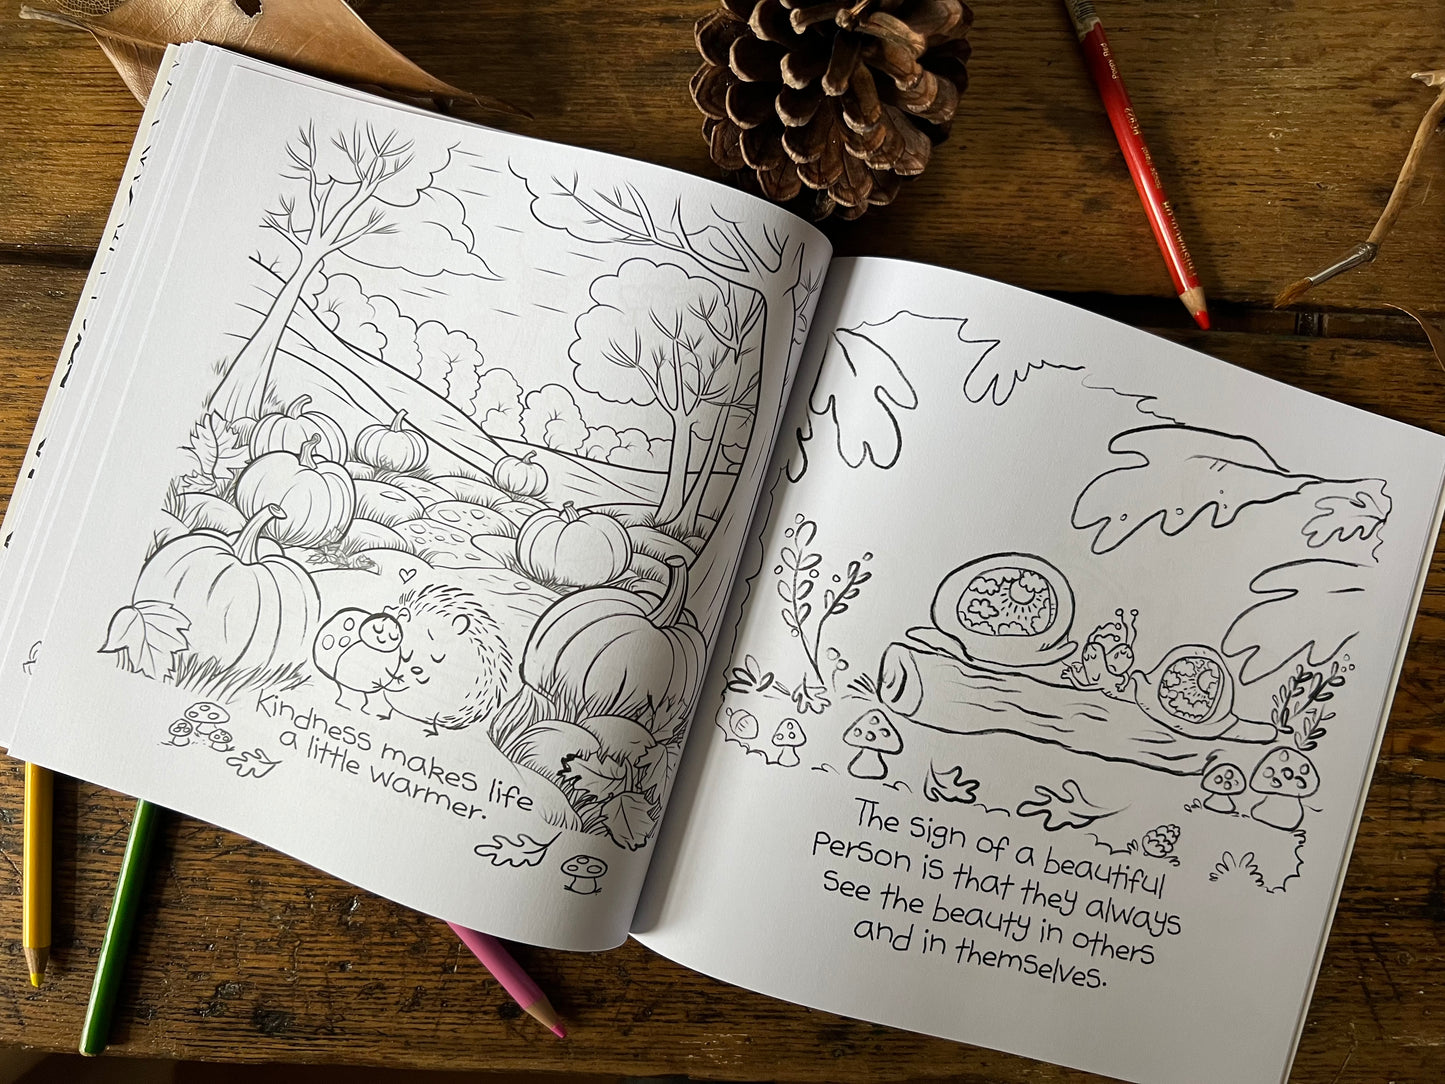 Kindness makes life
a little warmer.
The sign of a beautiful
Person is that they always
See the beauty in others
and in themselves.